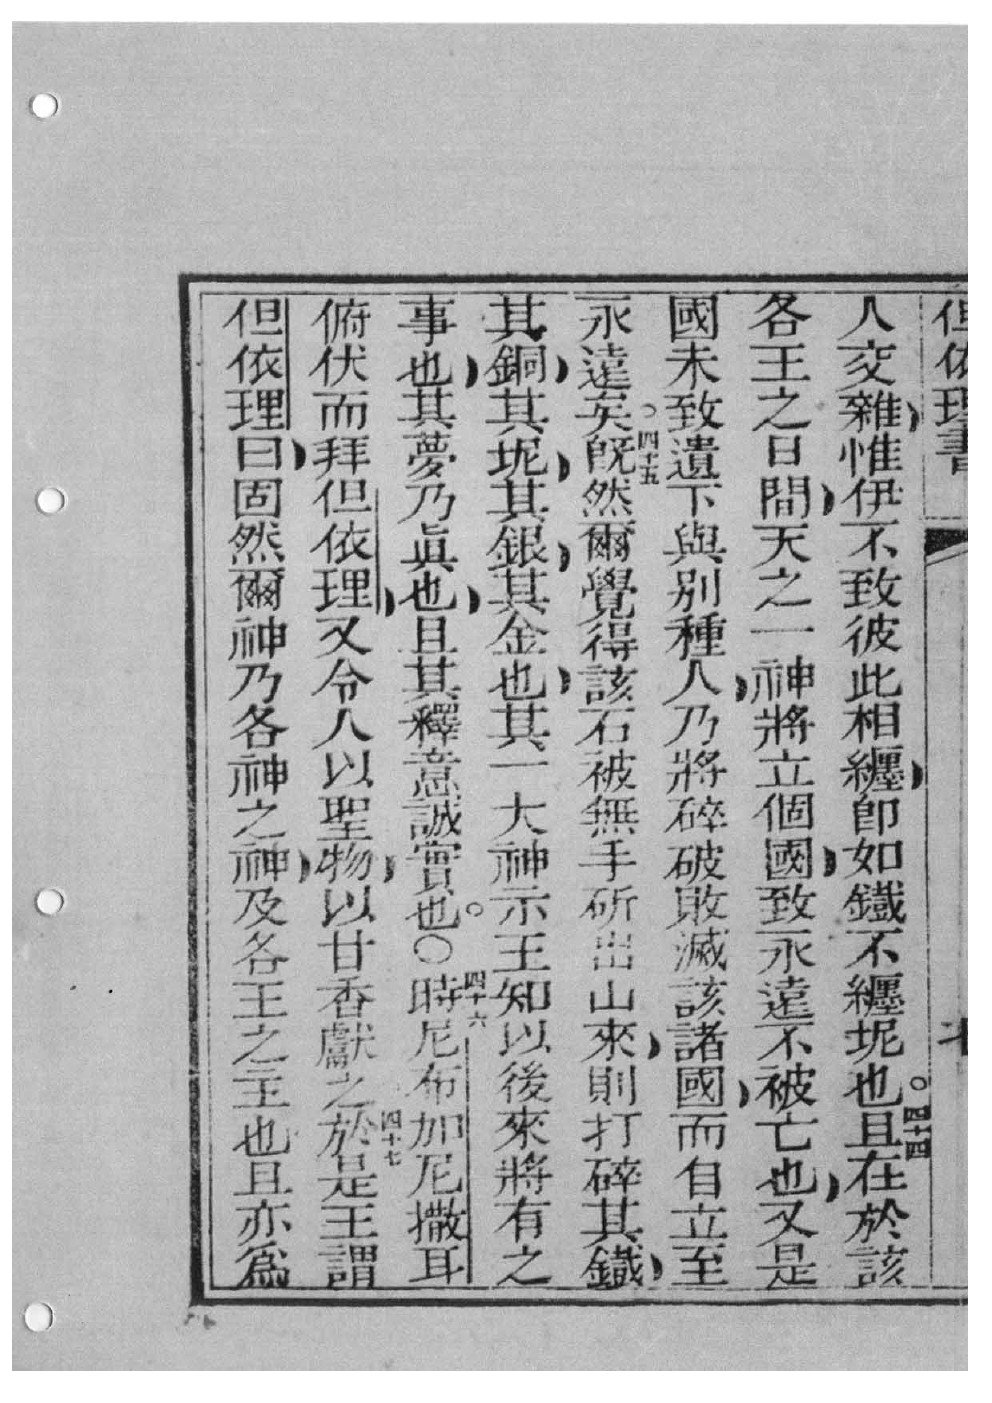 但依理書 七
人交雜惟伊不致彼此相纏卽如鐵不纏坭也。四十四且在於該
各王之日間天之一神將立個國致永遠不被亡也又是
國未致遺下與別種人乃將碎破敗滅該諸國而自立至
永遠矣。四十五旣然爾覺得該石被無手斫出山來則打碎其鐵
其銅其坭其銀其金也其一大神示王知以後來將有之
事也其夢乃眞也且其釋意誠實也。〇四十六時尼布加尼撒耳
俯伏而拜但依理又令人以聖物以甘香獻之四十七於是王謂
但依理曰固然爾神乃各神之神及各王之主也且亦爲